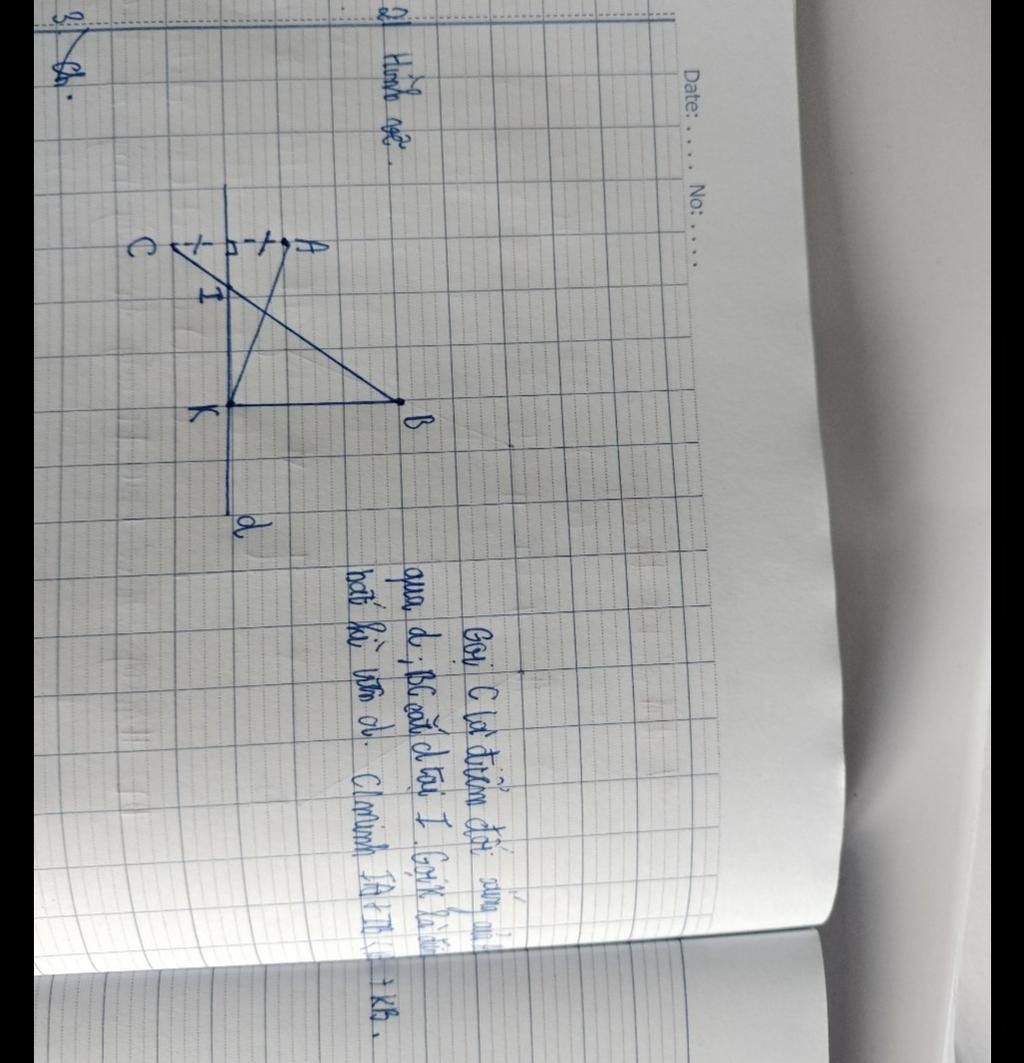 Date: .... No: ....
2) Hình vẽ.
A
C
I
B
K
d
Gọi C là điểm đối xứng
qua d; BC cắt d tại I. Gọi K là điểm
bất kì trên d. C/minh IA + IB < + KB.
3)